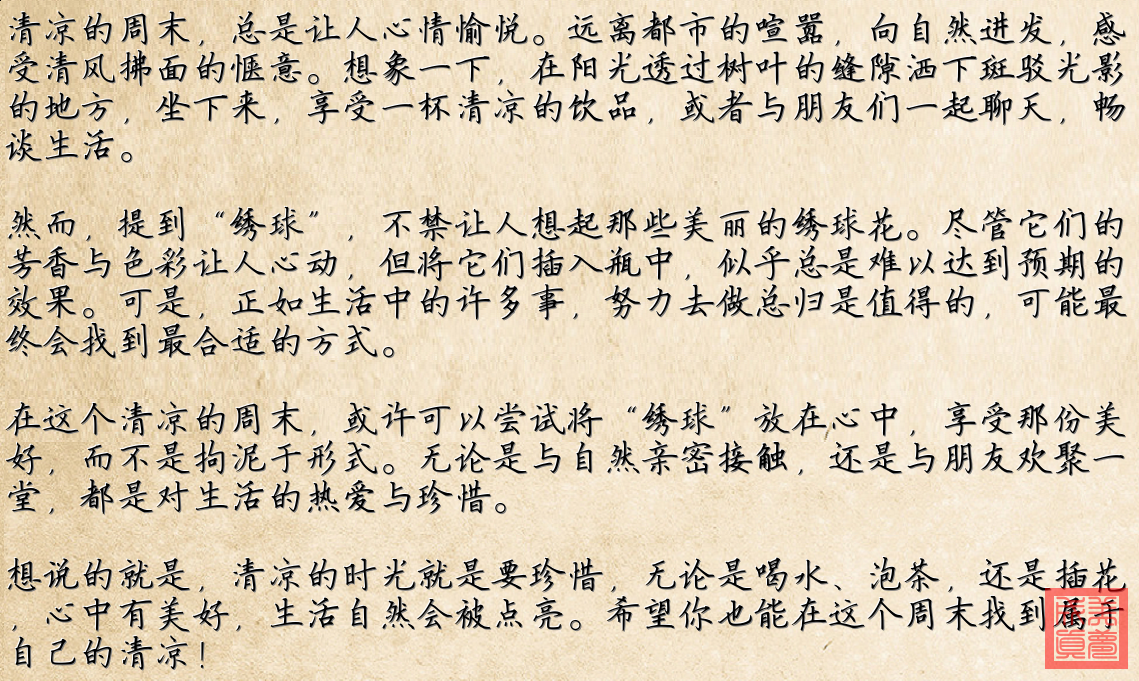 清凉的周末，总是让人心情愉悦。远离都市的喧嚣，向自然进发，感
受清风拂面的惬意。想象一下，在阳光透过树叶的缝隙洒下斑驳光影
的地方，坐下来，享受一杯清凉的饮品，或者与朋友们一起聊天，畅
谈生活。
然而，提到“绣球”，不禁让人想起那些美丽的绣球花。尽管它们的
芳香与色彩让人心动，但将它们插入瓶中，似乎总是难以达到预期的
效果。可是，正如生活中的许多事，努力去做总归是值得的，可能最
终会找到最合适的方式。
在这个清凉的周末，或许可以尝试将“绣球”放在心中，享受那份美
好，而不是拘泥于形式。无论是与自然亲密接触，还是与朋友欢聚一
堂，都是对生活的热爱与珍惜。
想说的就是，清凉的时光就是要珍惜，无论是喝水、泡茶，还是插花
，心中有美好，生活自然会被点亮。希望你也能在这个周末找到属于
自己的清凉！